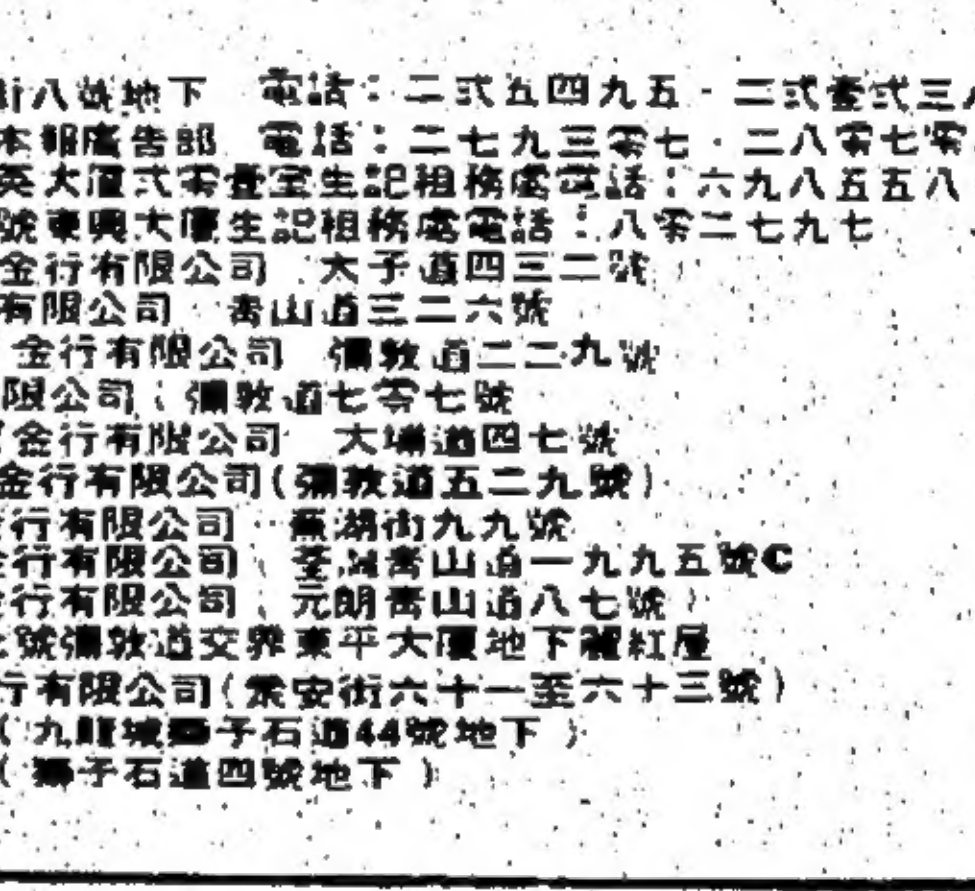 街八號地下 電話：二弍五四九五．二弍壹弍三八
本報廣告部 電話：二七九三零七．二八零七零
英大厦弍零壹室生記租務處電話：六九八五五八
號東興大廈生記租務處電話：八零二七九七
金行有限公司 太子道四三二號
有限公司 青山道三二六號
金行有限公司 彌敦道二二九號
限公司 彌敦道七零七號
金行有限公司 大埔道四七號
金行有限公司(彌敦道五二九號)
行有限公司 蕪湖街九九號
金行有限公司 荃灣青山道一九九五號C
行有限公司 元朗青山道八七號
號彌敦道交界東平大厦地下麗紅屋
行有限公司(崇安街六十一至六十三號)
(九龍城獅子石道44號地下)
(獅子石道四號地下)